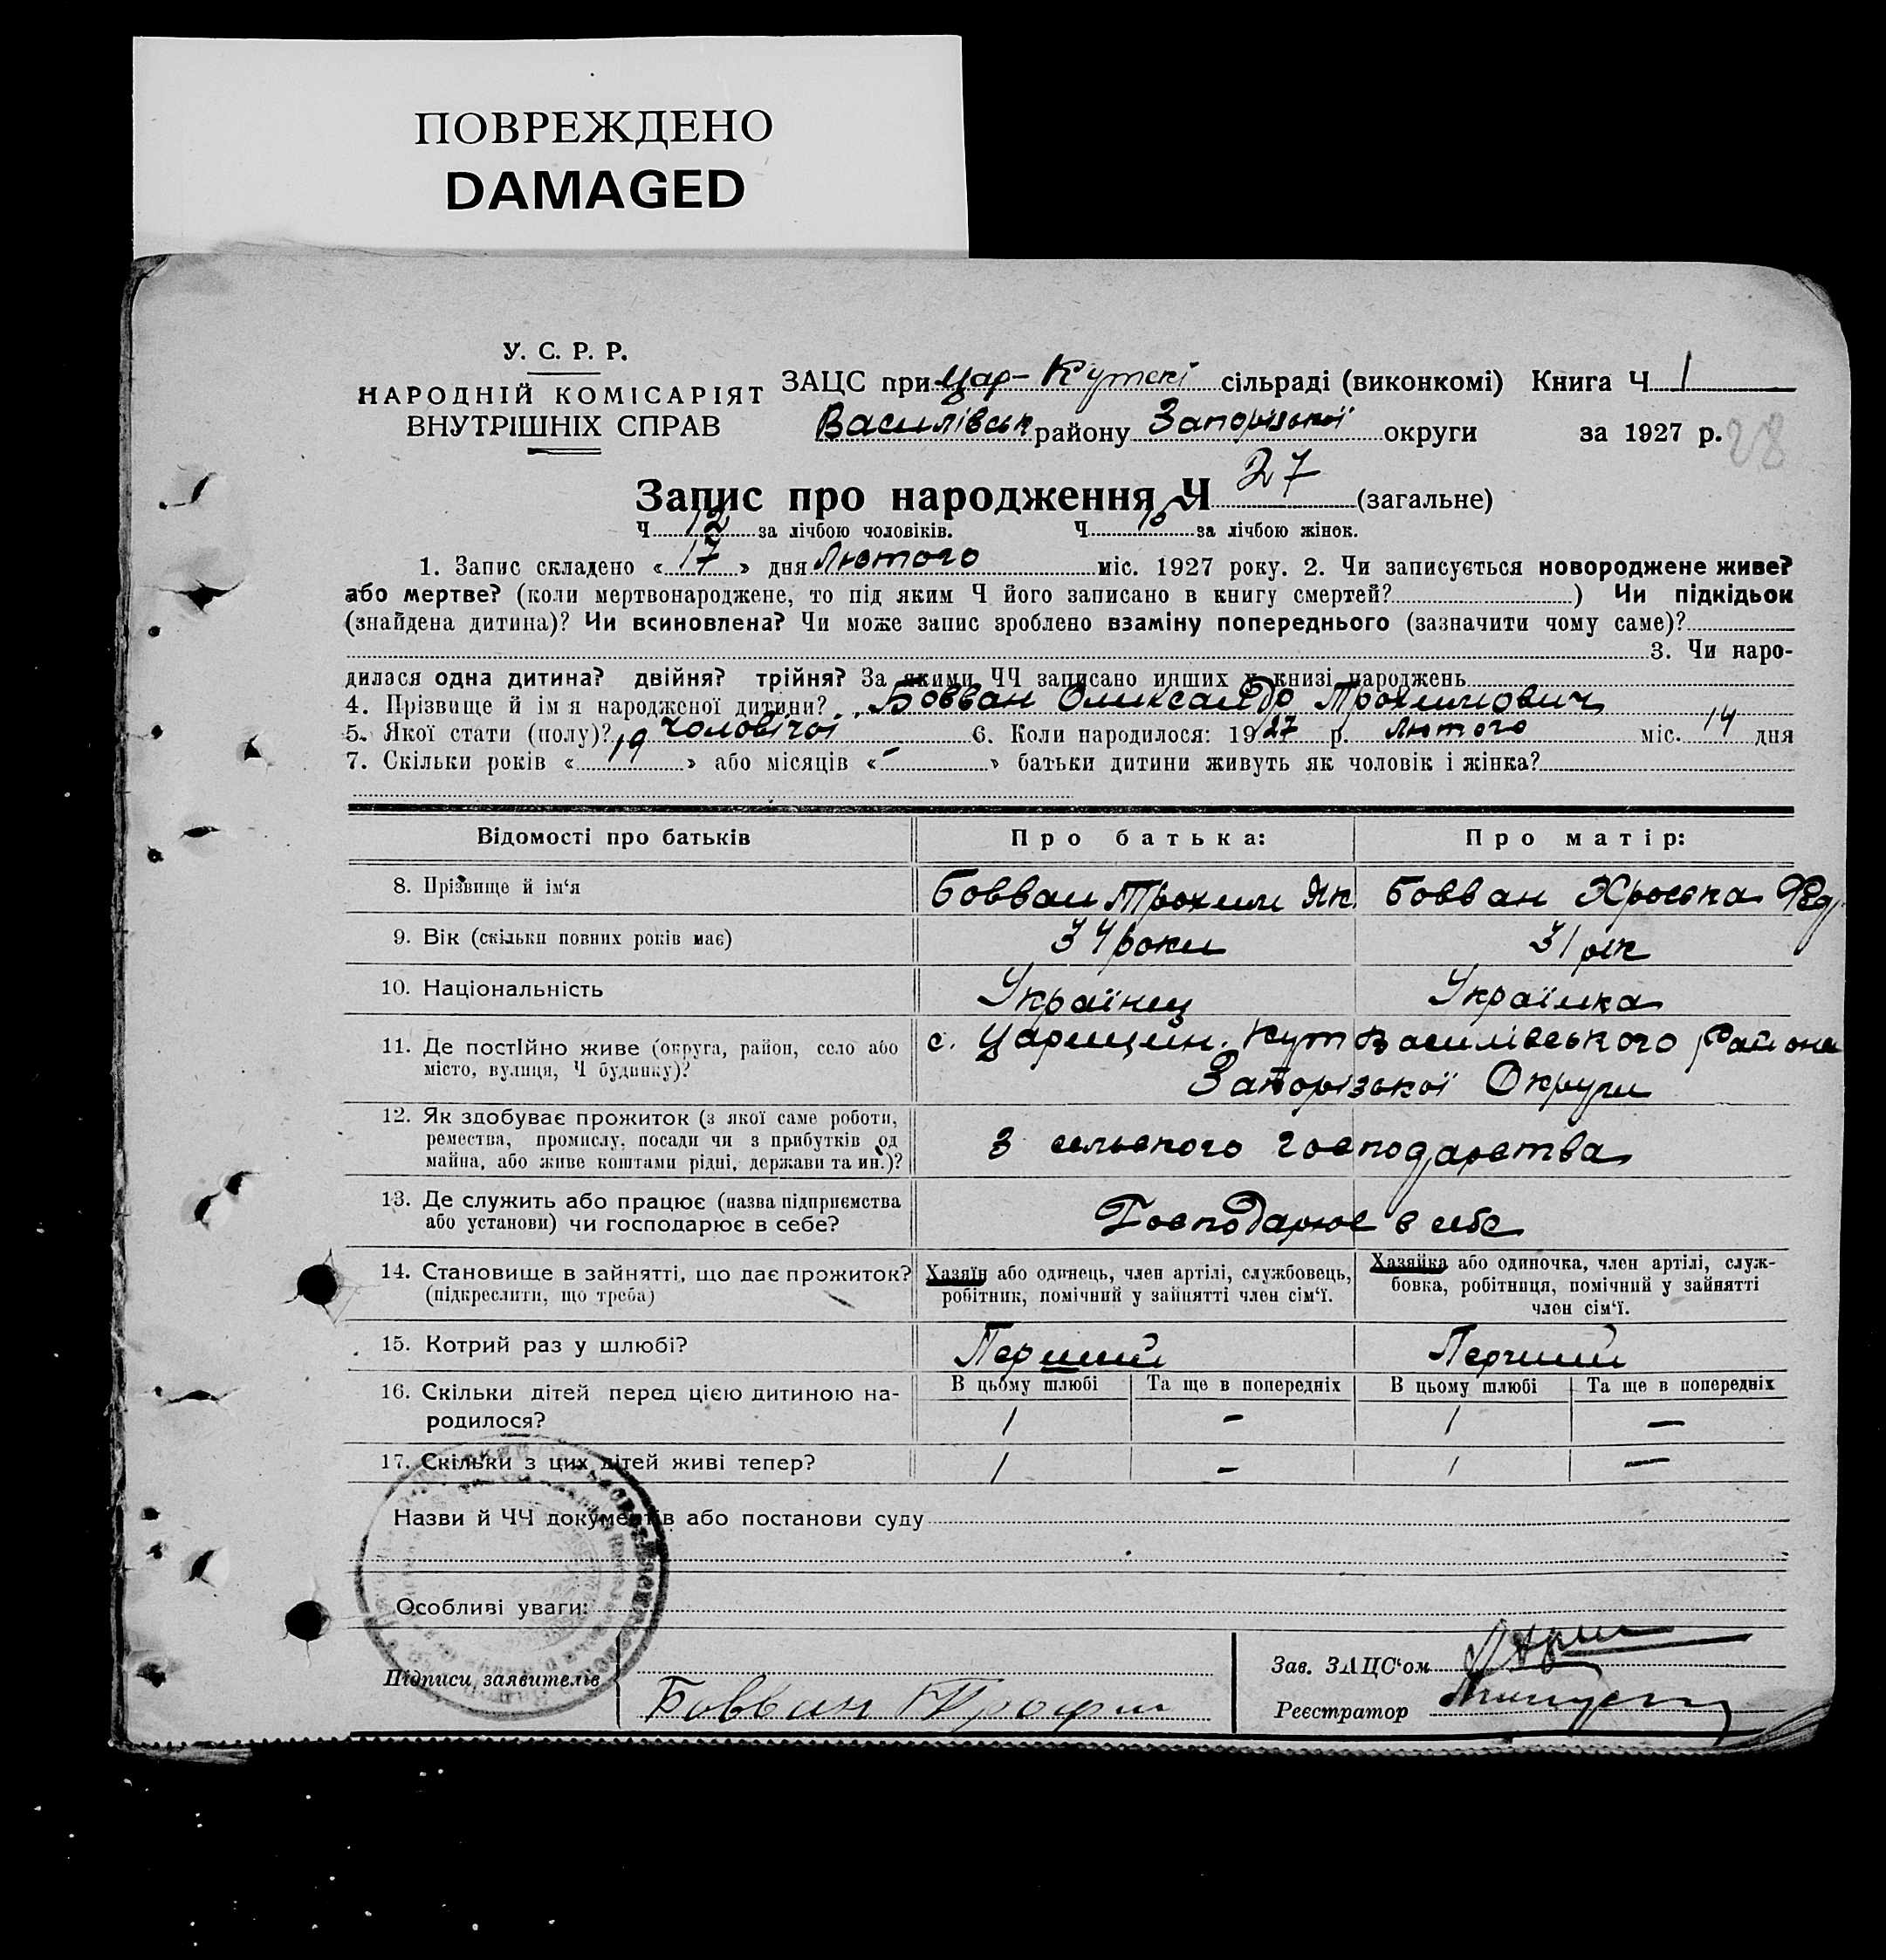 ПОВРЕЖДЕНО
DAMAGED
У. С. Р. Р.
НАРОДНІЙ КОМІСАРІЯТ
ВНУТРІШНІХ СПРАВ
ЗАЦС при Цар-Кутскі сільраді (виконкомі) Книга Ч 1
Василівськ району Запорізької округи за 1927 р. 28
Запис про народження Ч 27 (загальне)
Ч 12 за лічбою чоловіків. Ч за лічбою жінок.
1. Запис складено « 17 » дня Лютого міс. 1927 року. 2. Чи записується новороджене живе?
або мертве? (коли мертвонароджене, то під яким Ч його записано в книгу смертей? ) Чи підкідьок
(знайдена дитина)? Чи всиновлена? Чи може запис зроблено взаміну попереднього (зазначити чому саме)?
3. Чи наро-
дилася одна дитина? двійня? трійня? За якими ЧЧ записано инших у книзі народжень
4. Прізвище й ім'я народженої дитини? Бовван Олександр Трохимович
5. Якої стати (полу)? чоловічої 6. Коли народилося: 1927 р. Лютого міс. 14 дня
7. Скільки років « 19 » або місяців « – » батьки дитини живуть як чоловік і жінка?
Відомості про батьків Про батька: Про матір:
8. Прізвище й ім'я Бовван Трохим Як. Бовван Хроська Фед.
9. Вік (скільки повних років має) 34 роки 31 рік
10. Національність Українец Українка
11. Де постійно живе (округа, район, село або с. Царицин. Кут Василівського Района
місто, вулиця, Ч будинку)? Запорізької Округи
12. Як здобуває прожиток (з якої саме роботи,
ремества, промислу, посади чи з прибутків од з сельского господарства
майна, або живе коштами рідні, держави та ин.)?
13. Де служить або працює (назва підприємства
або установи) чи господарює в себе? Господарює в себе
14. Становище в зайнятті, що дає прожиток? Хазяїн або одинець, член артілі, службовець, Хазяйка або одиночка, член артілі, служ-
(підкреслити, що треба) робітник, помічний у зайнятті член сім'ї. бовка, робітниця, помічний у зайнятті
член сім'ї.
15. Котрий раз у шлюбі? Перший Перший
16. Скільки дітей перед цією дитиною на- В цьому шлюбі Та ще в попередніх В цьому шлюбі Та ще в попередніх
родилося? 1 – 1 –
17. Скільки з цих дітей живі тепер? 1 – 1 –
Назви й ЧЧ документів або постанови суду
Особливі уваги:
Підписи заявителів Зав. ЗАЦС'ом
Бовван Трофим Реєстратор